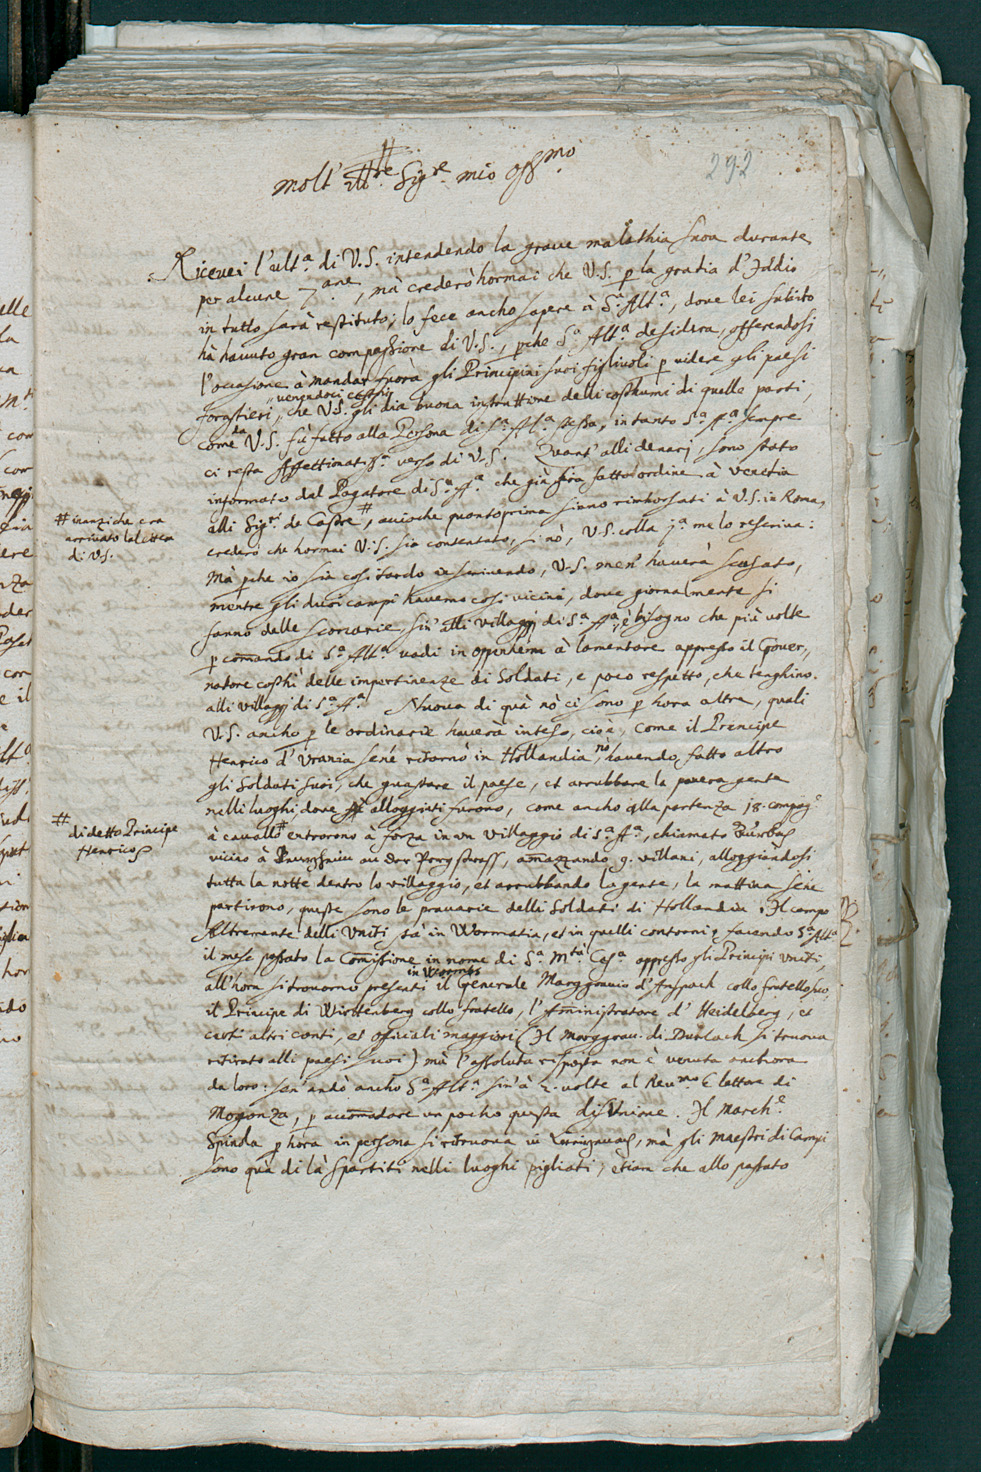 292
molt' Ill.re Sig.re mio oss.mo
Riceuei l'ult.a di V.S. intendendo la graue malathia sua durante
per alcune 7.ane, mà crederò hormai che V.S. p la gratia d'Iddio
in tutto sarà restituto; lo fece ancho sapere à S.a Alt.a, doue lei subito
hà hauuto gran compassione di V.S., pche S.a Alt.a desidera, offerendosi
l'occasione à mandar fuora gli Principini suoi figliuoli p uidere gli paesi
uengadoci costhi
forastieri, che V.S. gli dia buona instruttione delli costhumi di quelle parti,
come da V.S. fù fatto alla Persona di S.a Al.a stessa, in tanto S.a A.a sempre
ci resta Affettionatiss.a uerso di V.S. Quant' alli denarj, sono stato
informato dal Pagatore di S.a A.a che già sia fatto ordine à Venetia
alli Sig.ri de Castre #, accioche quantoprima siano rimborsati à V.S. in Roma,
# inanzi che era
arriuato la littera
di V.S.
crederò che hormai V.S. sia contentato, si nò, V.S. colla p.a me lo rescriua:
Mà pche io sia cosi tardo in scriuendo, V.S. men' hauerà scusato,
mentre gli duoi campi hauemo cosi vicini, doue giornalmente si
fanno delle scorrarie, sin' alli villaggj di S.a A.a, è bisogno che più uolte
p comando di S.a Alt.a uadi in à lamentare appresso il Gouer,,
natore costhi delle impertinenze di Soldati, e poco respetto, che tenghino
alli villaggj di S.a A.a Nuoua di quà nò ci sono p hora altre, quali
V.S. ancho p le ordinarie hauerà inteso, cioè, come il Prencipe
Henrico d'Urania sene ritornò in Hollandia, no hauendo fatto altro
gli Soldati suoi, che guastare il paese, et arrubbare la pouera gente
nelli luoghi, doue alloggiati furono, come ancho alla partenza 18. compag.e
# di detto Principe
Henrico
à cauallo # entrorono à forza in un Villaggio di S.a A.a, chiamato
vicino à an der Pergstrass, amazzando 9. villani, alloggiandosi
tutta la notte dentro lo villaggio, et arrubbando la gente, la mattina sene
partirono, queste sono le brauarie delli Soldati di Hollandia. Il campo
Altremente delli Uniti stà in Wormatia, et in quelli contorni; facendo S.a Alt.a
il mese passato la Comissione in nome di S.a M.tà Ces.a appresso gli Principi Uniti,
in Wormbs
all'hora si trouorno presenti il Generale Marggrauio d'Anspach collo fratello suo,
il Principe di Wirttenberg collo fratello, l'Aministratore d'Heidelberg, et
certi altri conti, et officiali maggiori (Il Marggrau. di Durlach si truoua
ritirato alli paesi suoi) mà l'assoluta risposta non è uenuta anchora
da loro: sen' andò ancho S.a Alt.a sin' à 2. uolte al Reu.mo Elettore di
Mogonza, p accomodare un pocho questa disUnione. Il March.e
Spinola p hora in persona si ritruoua in Creuzenach, mà gli Maestri di Campi
sono quà di là spartiti nelli luoghi pigliati, etiam che allo passato